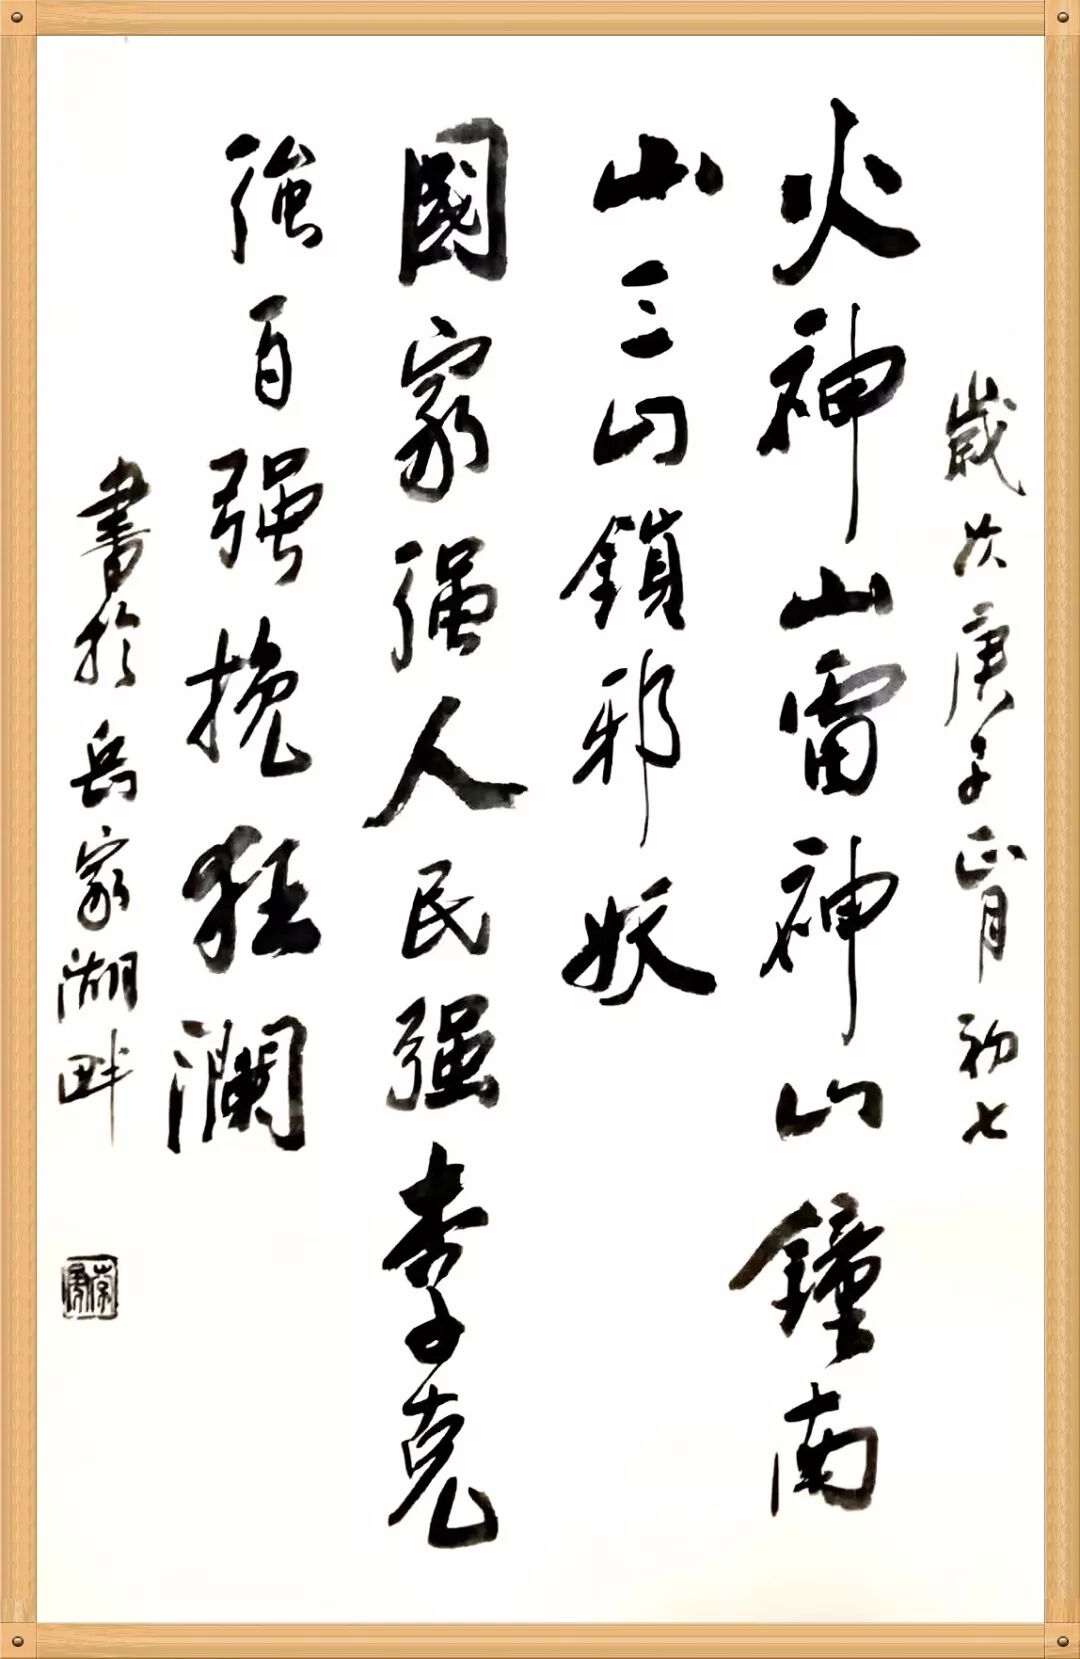 歲次庚子正月初七
火神山雷神山鐘南
山三山鎖邪妖
國家强人民强李克
強百强挽狂瀾
書於岳家湖畔